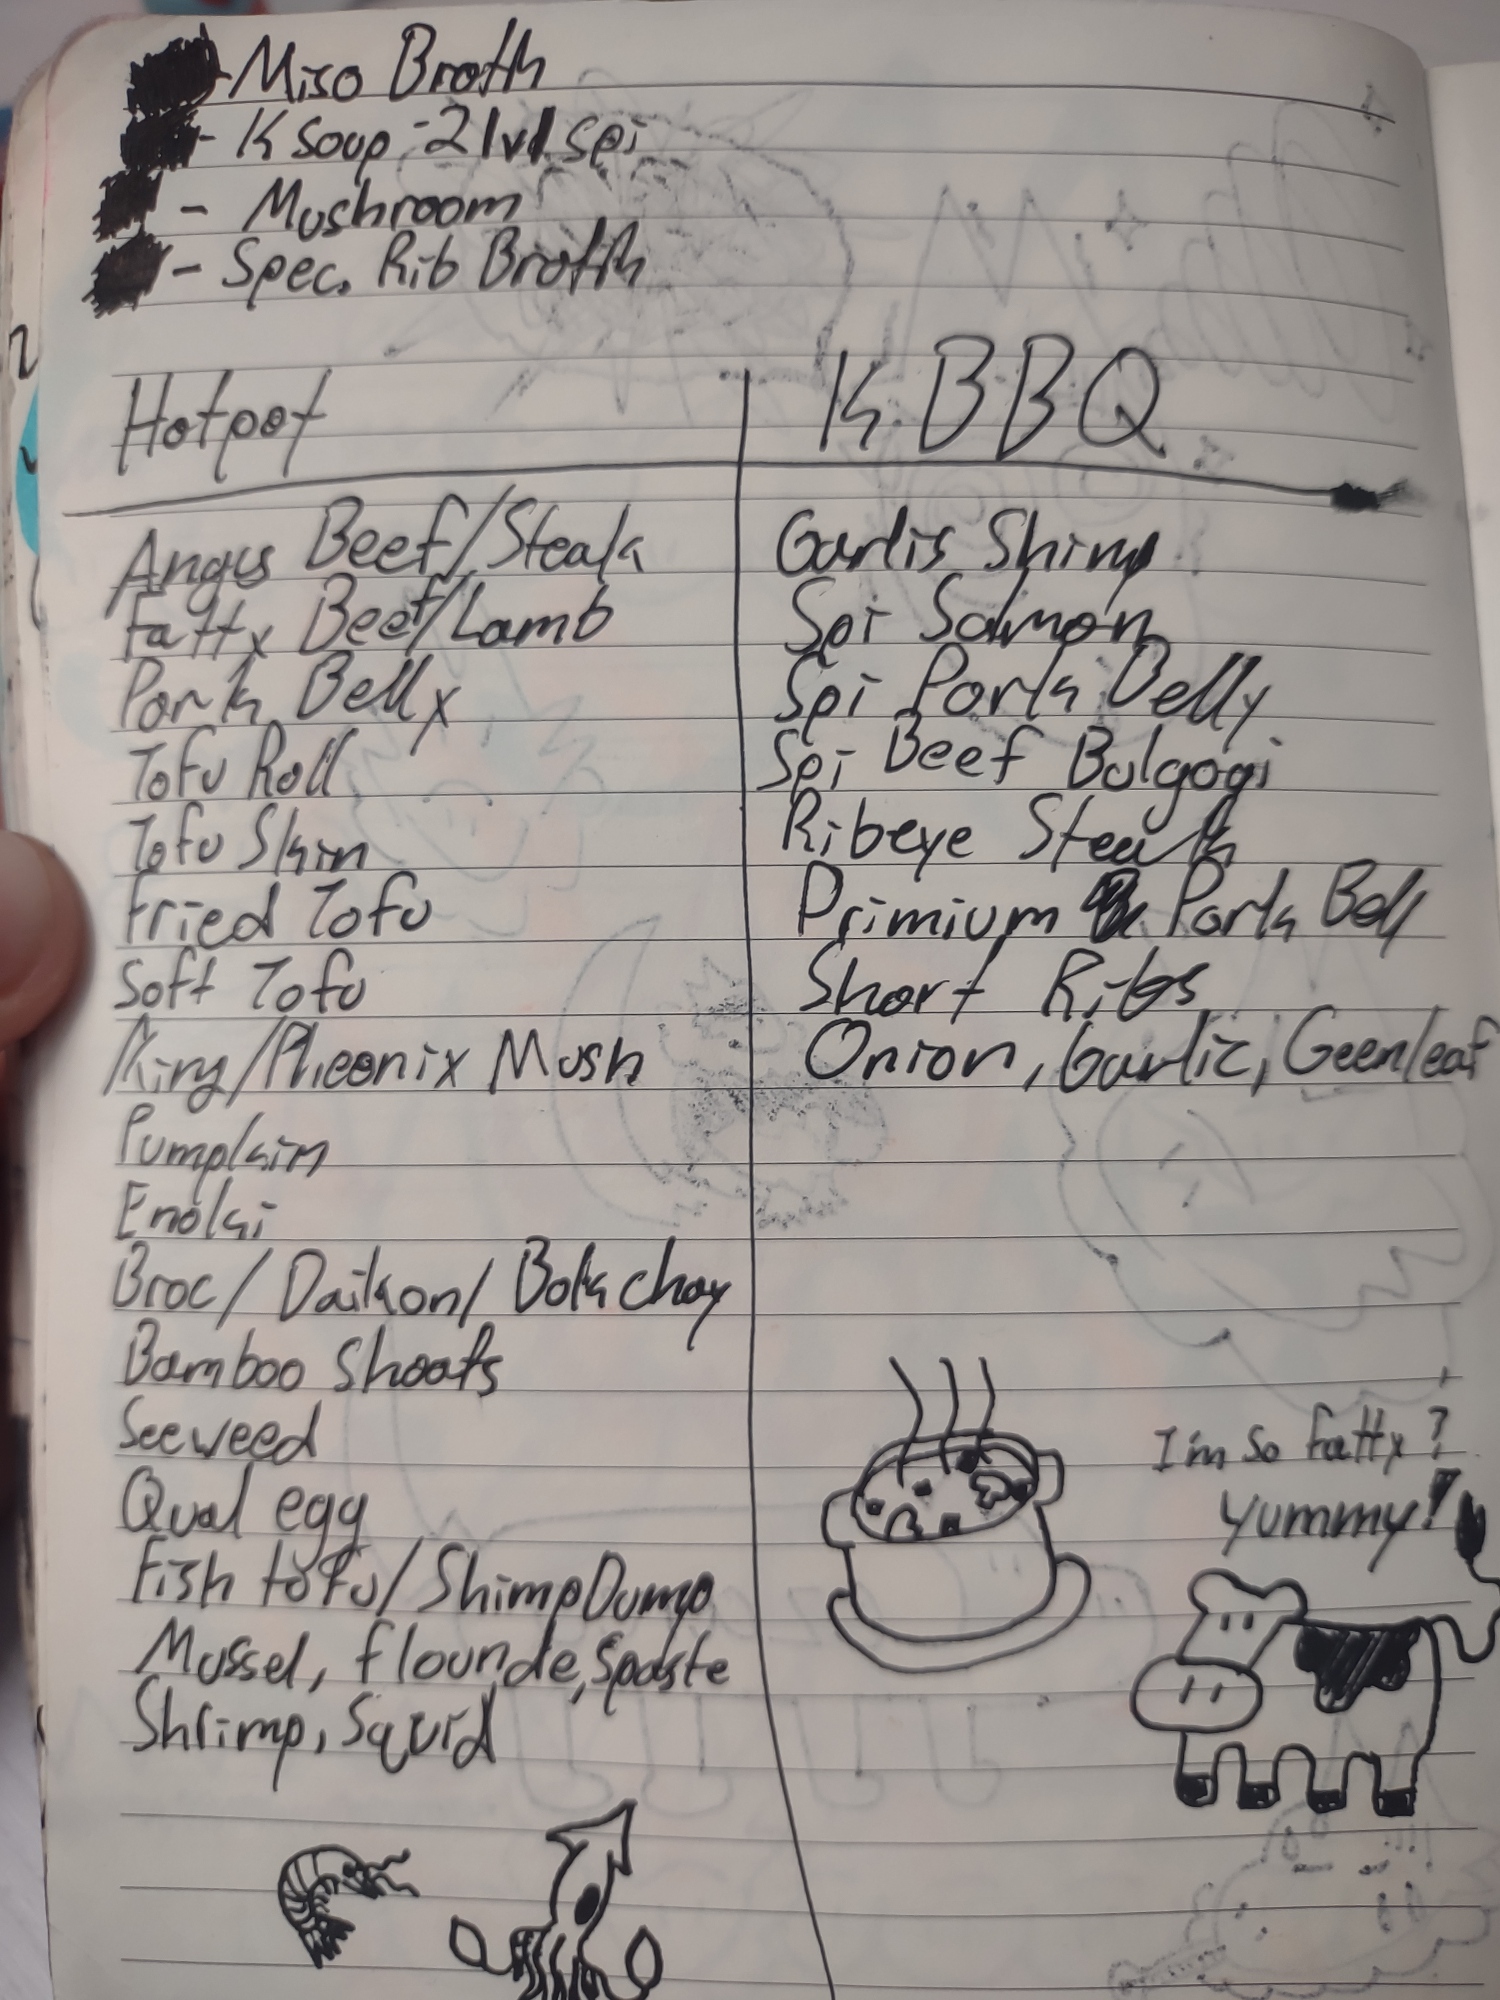 - Miso Broth
- K soup - 2 lvl spi
- Mushroom
- Spec. Rib Broth
Hotpot
Angus Beef/Steak
Fatty Beef/Lamb
Pork Belly
Tofu Roll
Tofu Skin
Fried Tofu
Soft Tofu
King/Pheonix Mush
Pumpkin
Enoki
Broc/Daikon/Bok choy
Bamboo Shoots
Seeweed
Qual egg
Fish tofu/ShimpDump
Mussel, flounde, Spaste
Shrimp, Squid
K BBQ
Garlis Shimp
Spi Salmon
Spi Pork Belly
Spi Beef Bulgogi
Ribeye Steak
Primium Pork Bell
Short Ribs
Onion, Garlic, Geenleaf
I'm so fatty?
yummy!